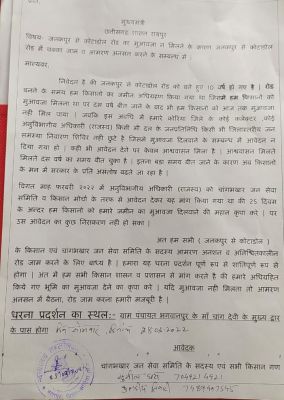 मुख्यमंत्री
छत्तीसगढ़ शासन रायपुर
विषयः- जनकपुर से कोटाडोल रोड का मुआवजा न मिलने के कारण जनकपुर से कोटाडोल
रोड में चक्का जाम व आमरण अनसन करने के सम्बन्ध में
मान्यवर,
निवेदन है की जनकपुर से कोटाडोल रोड को बने हुए 10 वर्ष हो गए है। रोड
बनने के समय हम किसानों का जमीन अधिग्रहण किया गया था जिसमें हम किसानों को
मुआवजा मिलना था पर दस वर्ष बीत जाने के बाद भी हम किसानों को आज तक मुआवजा
नहीं मिल पाया। जबकि इस अवधि में हमारे कोरिया जिले के कोई कलेक्टर, कोई
अनुविभागीय अधिकारी (राजस्व) किसी भी दल के जनप्रतिनिधि किसी भी जिलास्तरीय जन
समस्या निवारण शिविर नहीं छूटे है जिसमें मुआवजा दिलवाने के सम्बन्ध में आवेदन न
दिया गया हो। कही भी आवेदन देने पर केवल आश्वासन मिला है। आश्वासन मिलते
मिलते दस वर्ष का समय बीत चुका है। इतना बड़ा समय बीत जाने के कारण अब किसानों
के मन में सरकार के प्रति असंतोष पनप रहा है।
विगत माह फरवरी २०२२ में अनुविभागीय अधिकारी (राजस्व) को चांगभखार जन सेवा
समिति व किसान मोर्चा के तरफ से आवेदन देकर यह मांग किया गया था की 25 दिवस
के अन्दर हम किसानों को हमारे जमीन का मुआवजा दिलवाने की महान कृपा करे। पर
उस आवेदन का कुछ निराकरण नहीं हो सका।
अत हम सभी (जनकपुर से कोटाडोल)
के किसान एवं चांगभखार जन सेवा समिति के सदस्य आमरण अनशन व अनिश्चितकालीन
रोड जाम करने के लिए बाध्य है। हमारा यह धरना प्रदर्शन पूर्ण रूप से शांतिपूर्ण रूप से
होगा। अत में हम सभी किसान शासन व प्रशासन से मांग करते है की हमारे अधिग्रहित
किये गए भूमि का मुआवजा देने का कृपा करे। यदि मुआवजा नहीं मिलता तो आमरण
अनसन में बैठना, रोड जाम करना हमारी मजबूरी है।
धरना प्रदर्शन का स्थलः- ग्राम पंचायत भगवानपुर के माँ चांग देवी के मुख्य द्वार
के पास होगा दिन सोमवार दिनांक 28.03.2022
आवेदक
चांगभखार जन सेवा समिति के सदस्य एवं सभी किसान गण